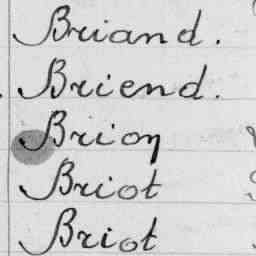 Briand.
Briend.
Brion
Briot
Briot